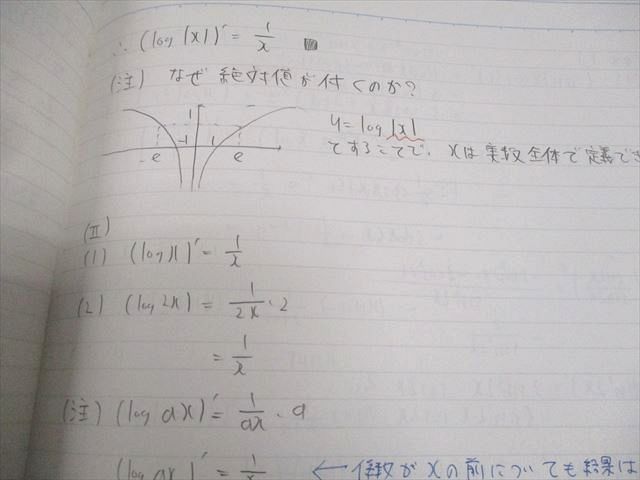 ∴ (log|x|)' = 1/x
(注) なぜ絶対値が付くのか?
1
-1 1
-e e
y = log|x|
とすることで、xは実数全体で定義でき
(II)
(1) (log x)' = 1/x
(2) (log 2x) = 1/2x · 2
= 1/x
(注) (log ax)' = 1/ax · a
(log ax)' = 1/x ← 係数がxの前についても結果は